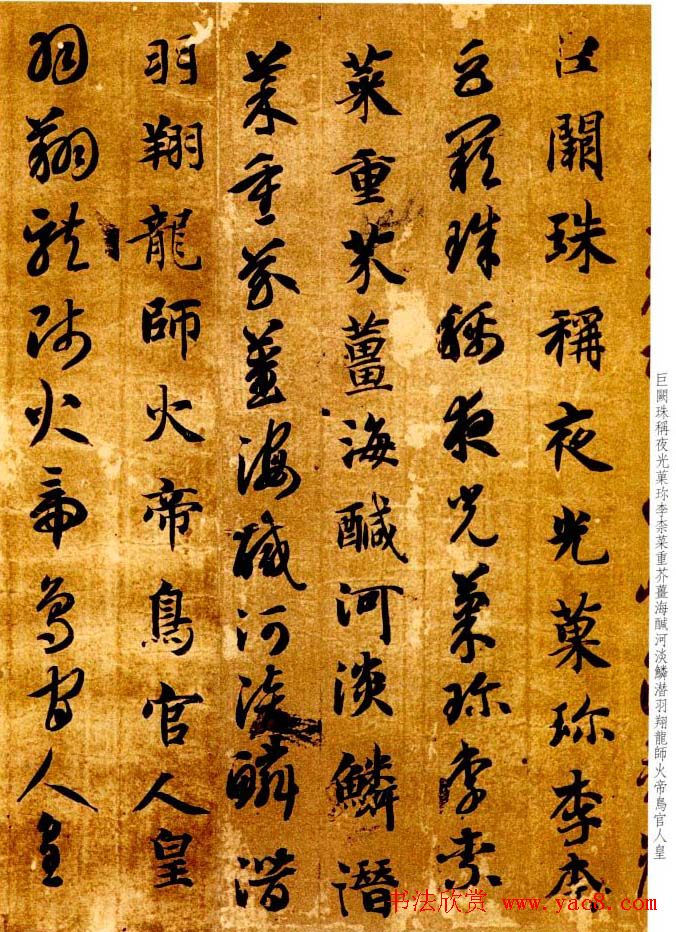 巨闕珠稱夜光菓珎李柰菜重芥薑海醎河淡鱗潜羽翔龍師火帝鳥官人皇
巨闕珠稱夜光菓珎李柰
巨闕珠稱夜光菓珎李柰
菜重芥薑海醎河淡鱗潛
菜重芥薑海醎河淡鱗潛
羽翔龍師火帝鳥官人皇
羽翔龍師火帝鳥官人皇
书法欣赏 www.yac8.com